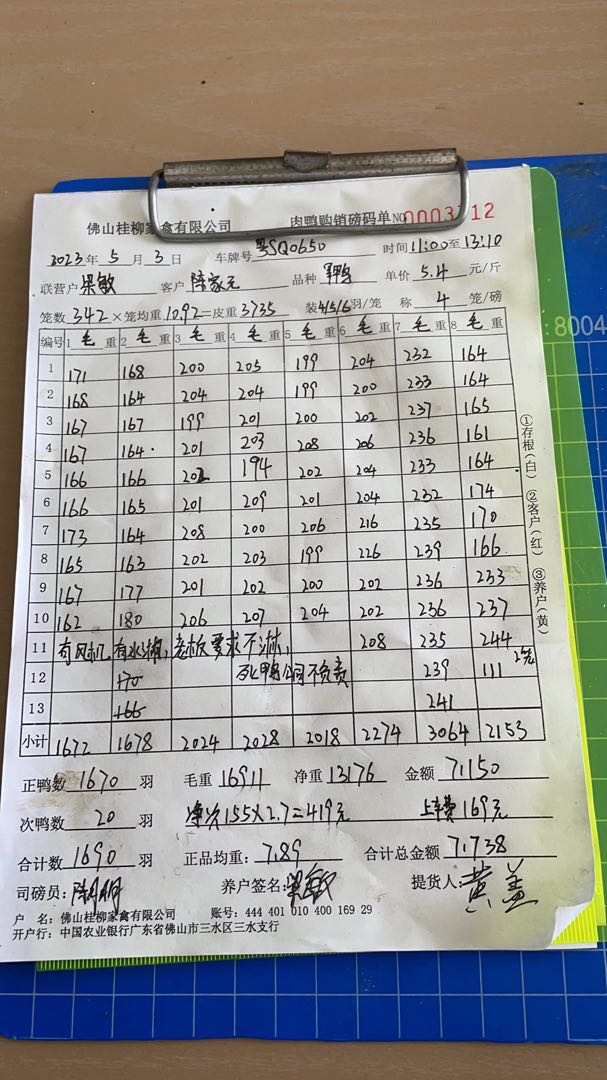 佛山桂柳家禽有限公司 肉鸭购销磅码单 NO 0003712
2023年 5 月 3 日 车牌号 粤SQ0650 时间 11:00 至 13:10
联营户 梁敏 客户 陈家元 品种 单价 5.4 元/斤
笼数 342 ×笼均重 10.92 =皮重 3735 装4/5/6羽/笼 称 4 笼/磅
编号 1 毛重 2 毛重 3 毛重 4 毛重 5 毛重 6 毛重 7 毛重 8 毛重
1 171 168 200 205 199 204 232 164
2 168 164 204 204 199 200 233 164
3 167 167 199 201 200 202 237 165
4 167 164 201 203 208 206 236 161
5 166 166 202 194 202 204 233 164
6 166 165 201 209 201 204 232 174
7 173 164 208 200 206 216 235 170
8 165 163 202 203 199 226 239 166
9 167 177 201 202 200 202 236 233
10 162 180 206 207 204 202 236 237
11 有风机 有水淋, 老板要求不淋, 208 235 244
12 170 死鸭公司不负责 239 111 2笼
13 166 241
小计 1672 1678 2024 2028 2018 2274 3064 2153
正鸭数 1670 羽 毛重 16911 净重 13176 金额 71150
次鸭数 20 羽 净次155×2.7=419元 上车费169元
合计数 1690 羽 正品均重: 7.89 合计总金额 71738
司磅员: 养户签名: 梁敏 提货人: 黄盖
户 名: 佛山桂柳家禽有限公司 账号: 444 401 010 400 169 29
开户行: 中国农业银行广东省佛山市三水区三水支行
①存根(白) ②客户(红) ③养户(黄)
8004